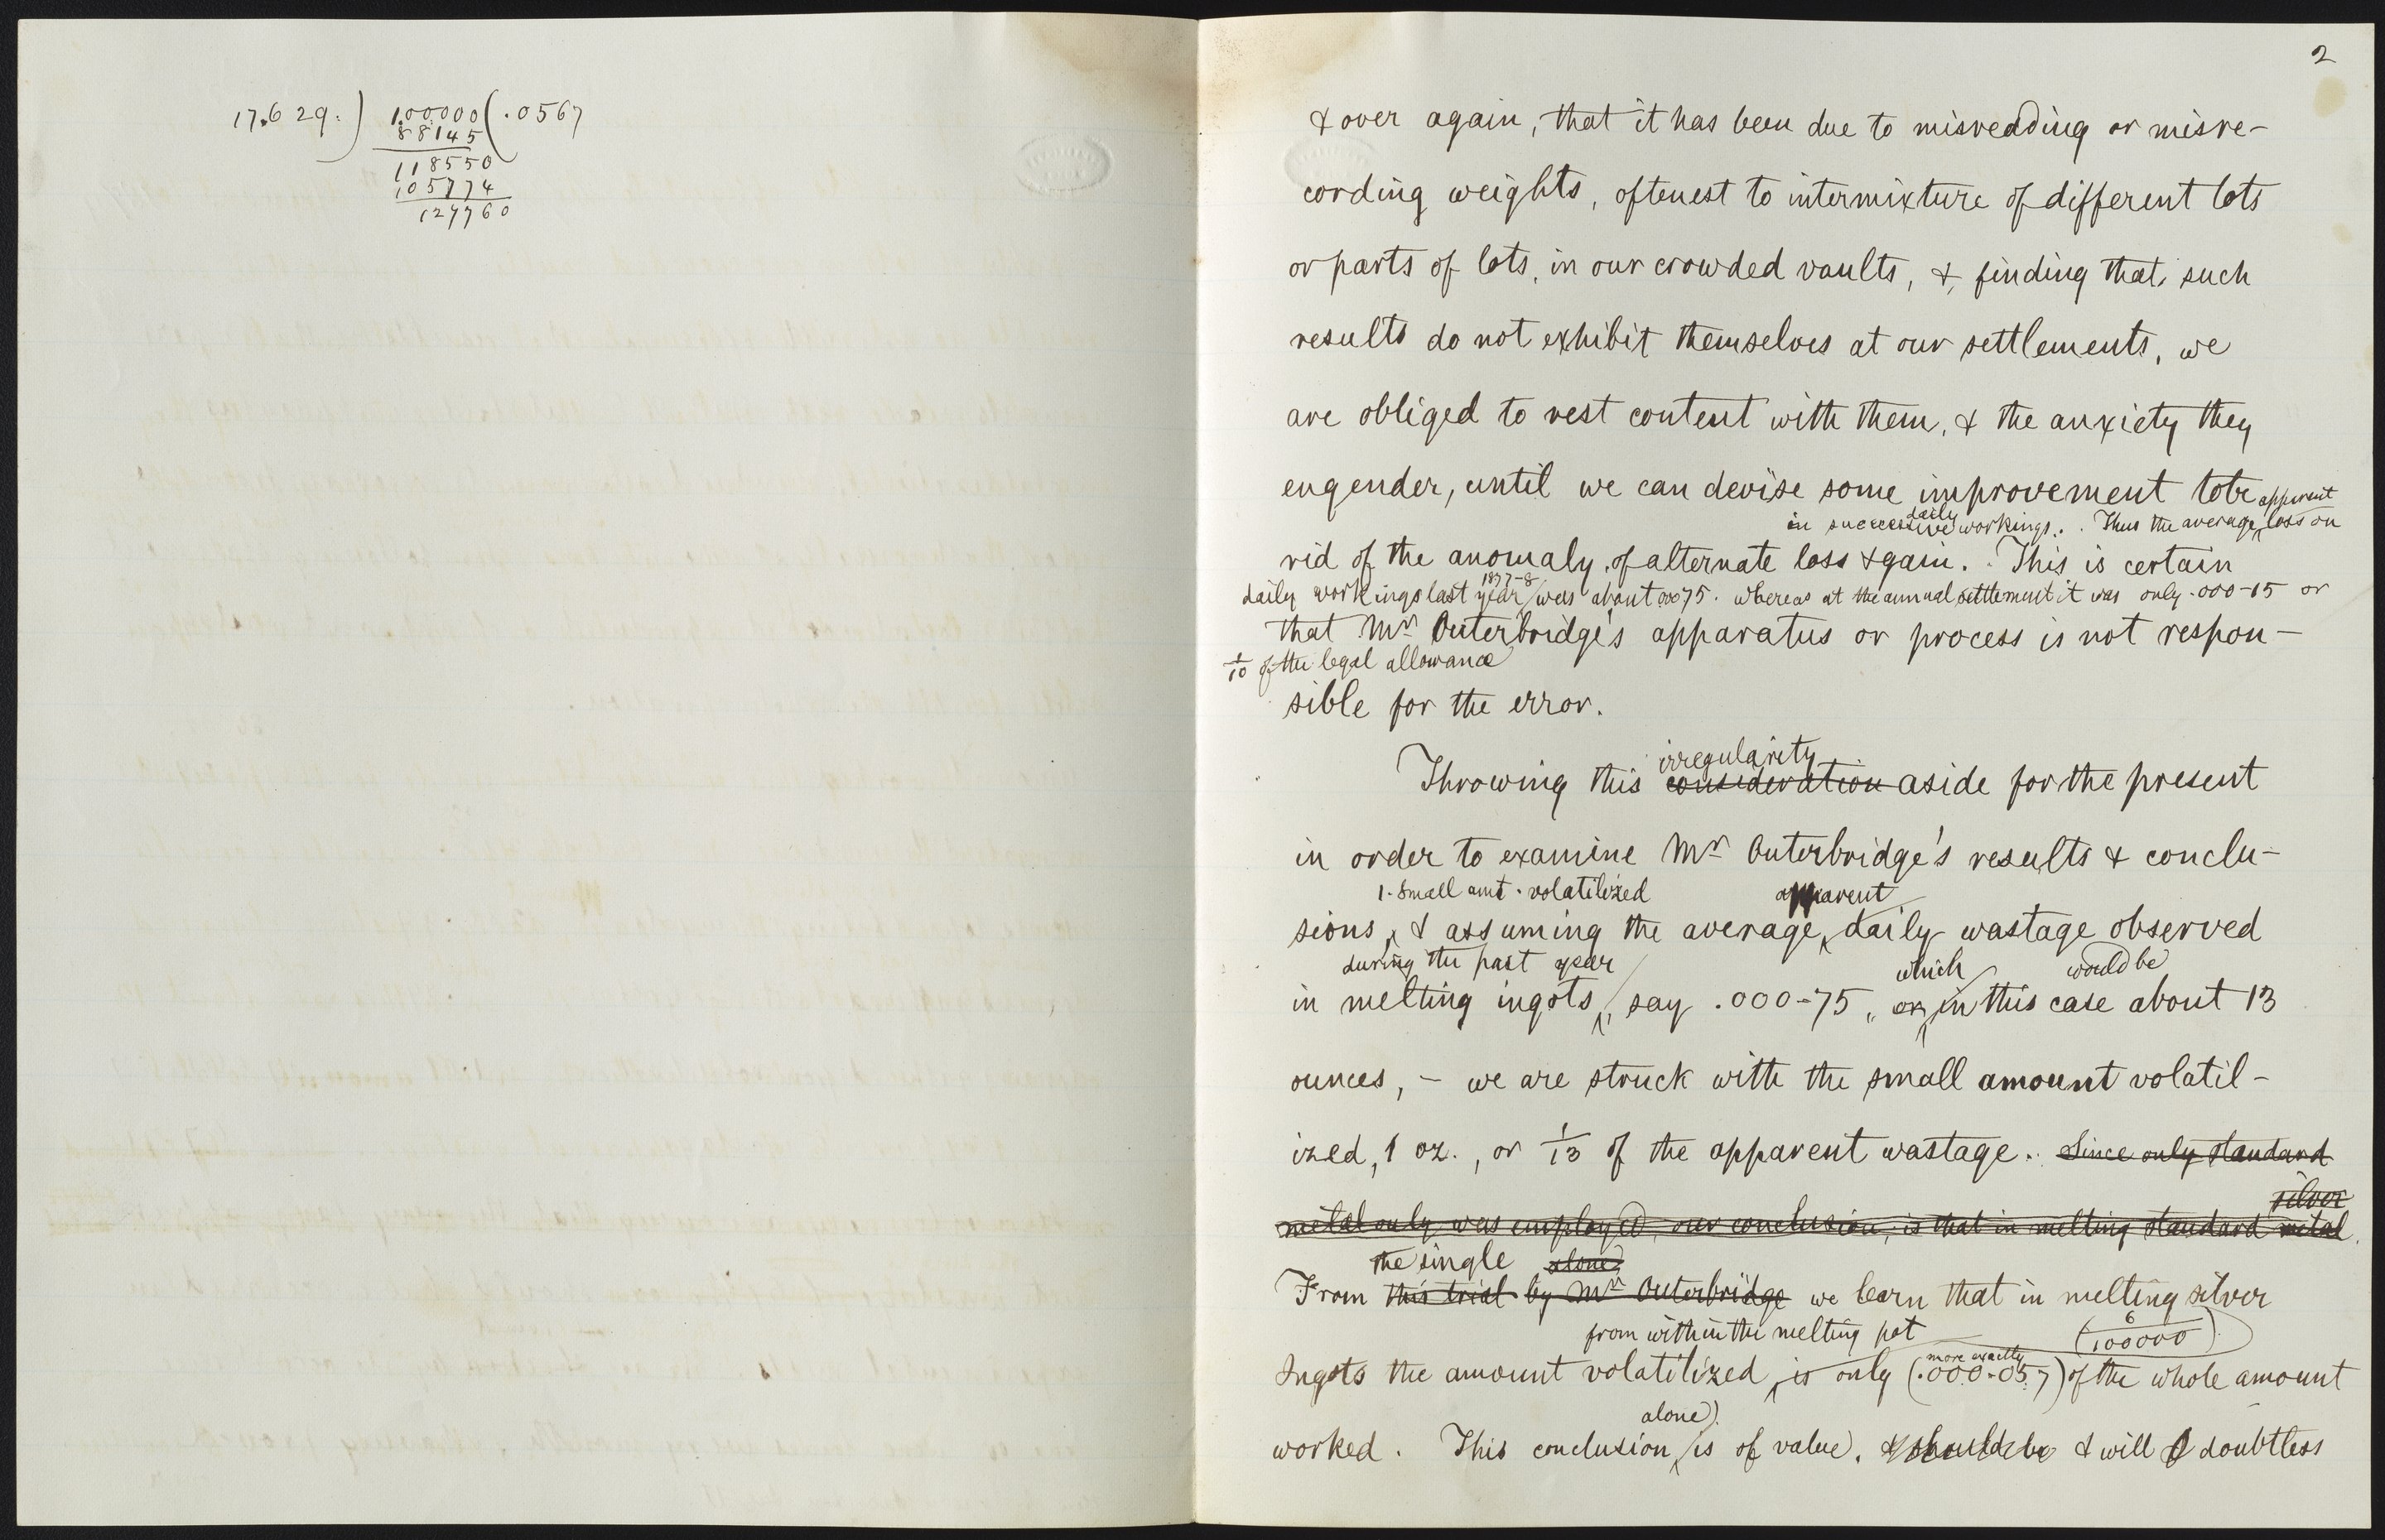 17.629.) 1.00000 (.0567
88145
118550
105774
127760
2
& over again, that it has been due to misreading or misre-
cording weights, oftenest to intermixture of different lots
or parts of lots, in our crowded vaults, & finding that such
results do not exhibit themselves at our settlements, we
are obliged to rest content with them, & the anxiety they
engender, until we can devise some improvement to be
apparent
in successive daily workings. Thus the average loss on
rid of the anomaly of alternate loss & gain. This is certain
1877-8
daily workings last year was about 00075. whereas at the annual settlement it was only .000-15 or
that Mr Outerbridge's apparatus or process is not respon-
1/10 of the legal allowance
sible for the error.
irregularity
Throwing this consideration aside for the present
in order to examine Mr Outerbridge's results & conclu-
1. Small amt. volatilized apparent
sions, & assuming the average daily wastage observed
during the past year which would be
in melting ingots, say .000-75, or in this case about 13
ounces, - we are struck with the small amount volatil-
ized, 1 oz., or 1/13 of the apparent wastage. Since only standard
silver
metal only was employed, our conclusion, is that in melting standard metal
the single alone
From this trial by Mr Outerbridge we learn that in melting silver
from within the melting pot (6/100000)
more exactly
Ingots the amount volatilized is only (.000-057) of the whole amount
alone)
worked. This conclusion is of value, & should be & will doubtless